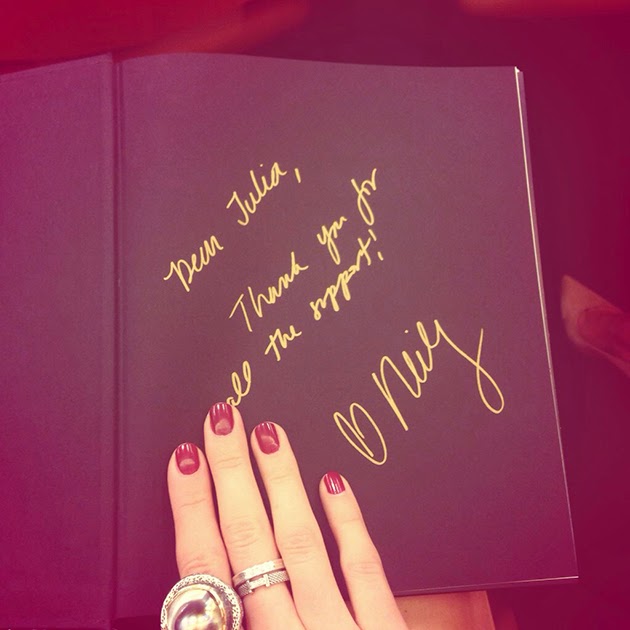 Dear Julia,
Thank you for
all the support!
♡ Neily